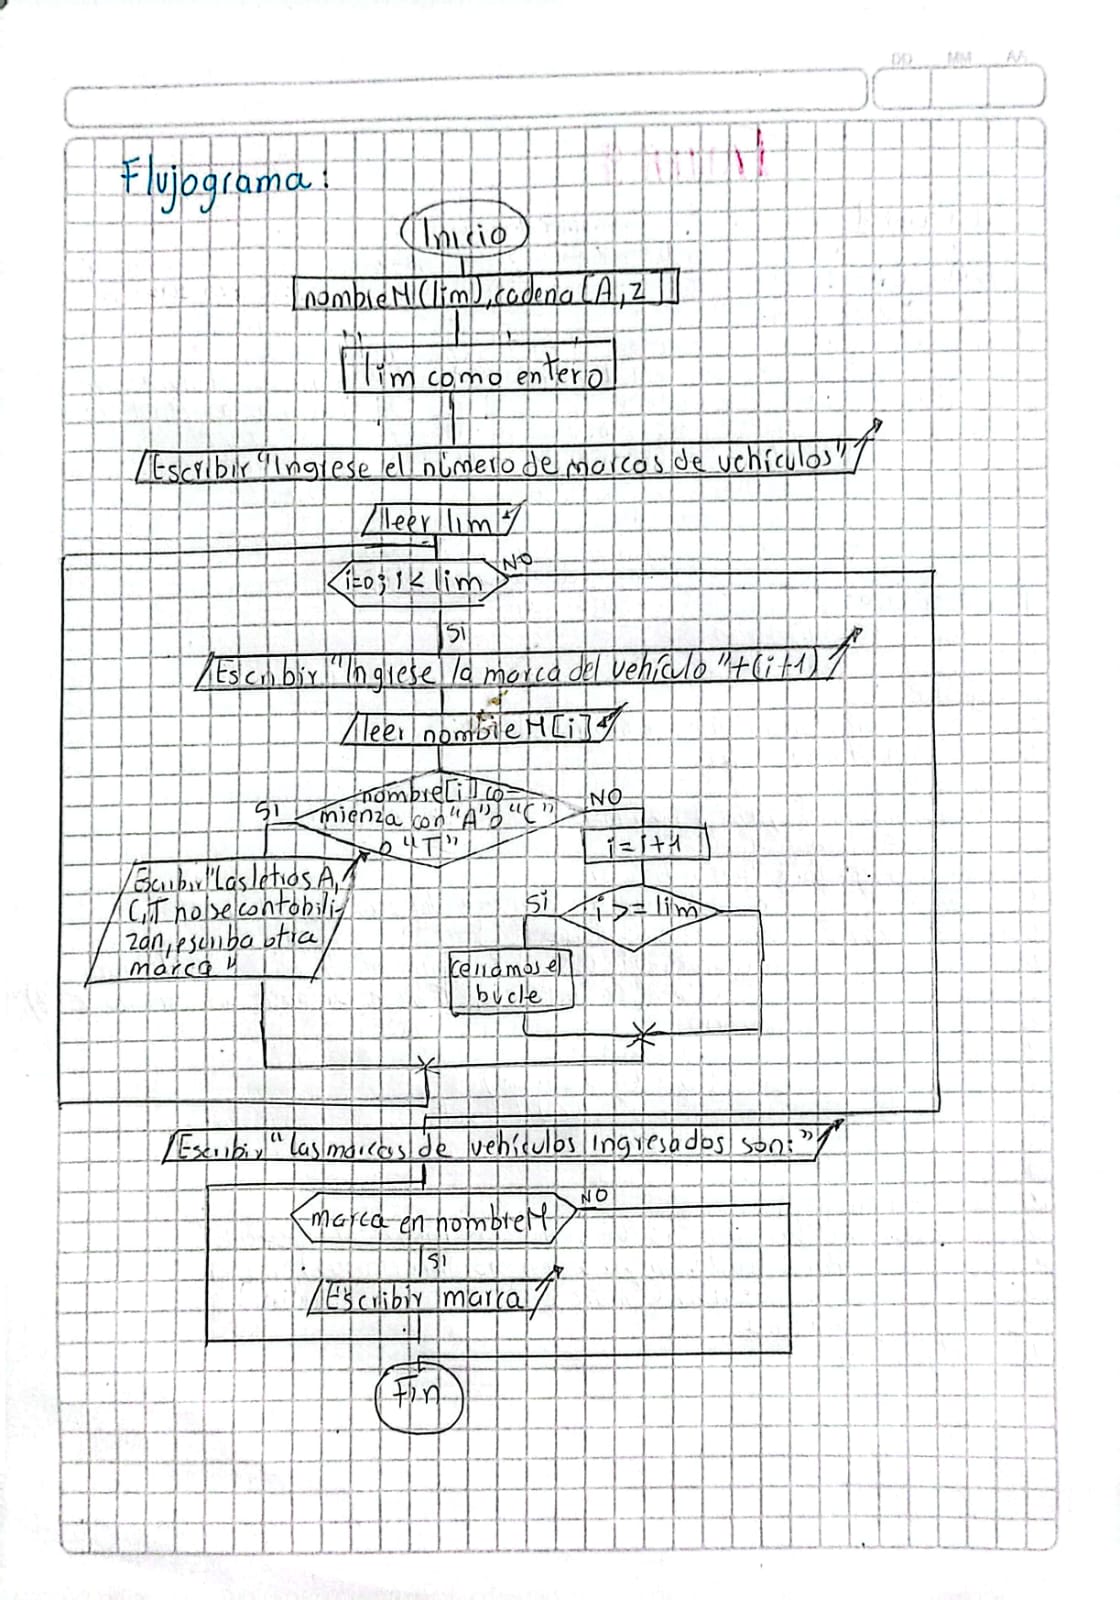 DD MM AA
Flujograma:
Inicio
nombreM(lim),cadena[A,Z]
lim como entero
Escribir "Ingrese el número de marcas de vehículos"
leer lim
i=0; i < lim
NO
SI
Escribir "Ingrese la marca del vehículo "+(i+1)
leer nombreM[i]
nombre[i] co-
mienza con "A" o "C"
o "T"
SI
NO
i=i+1
Escribir "Las letras A,
C,T no se contabili-
zan, escriba otra
marca"
SI
i >= lim
Cerramos el
bucle
Escribir "las marcas de vehículos Ingresados son:"
marca en nombreM
NO
SI
Escribir marca
Fin